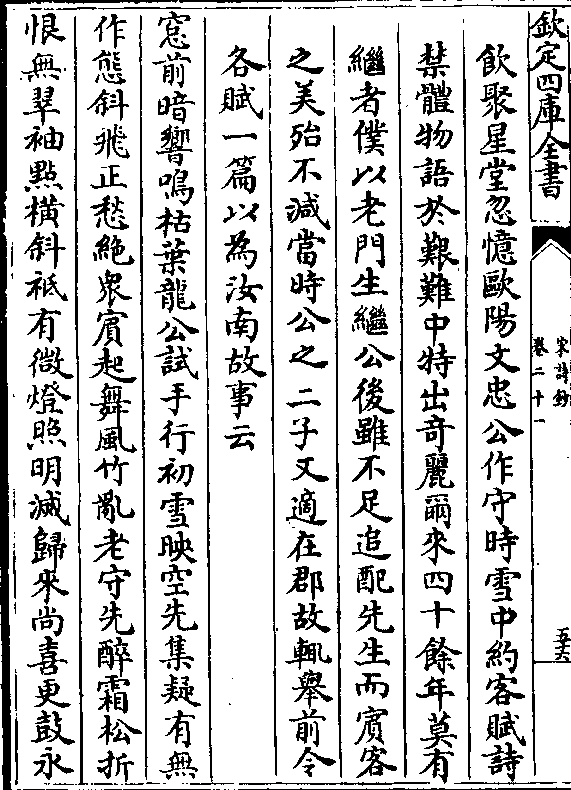 欽定四庫全書
宋詩鈔
卷二十一
飲聚星堂忽憶歐陽文忠公作守時雪中約客賦詩
禁體物語於艱難中特出奇麗爾來四十餘年莫有
繼者僕以老門生繼公後雖不足追配先生而賓客
之美殆不減當時公之二子又適在郡故輒舉前令
各賦一篇以為汝南故事云
窓前暗響鳴枯葉龍公試手行初雪映空先集疑有無
作態斜飛正愁絶衆賓起舞風竹亂老守先醉霜松折
恨無翠袖㸃橫斜祗有微燈照明滅歸來尚喜更鼓永